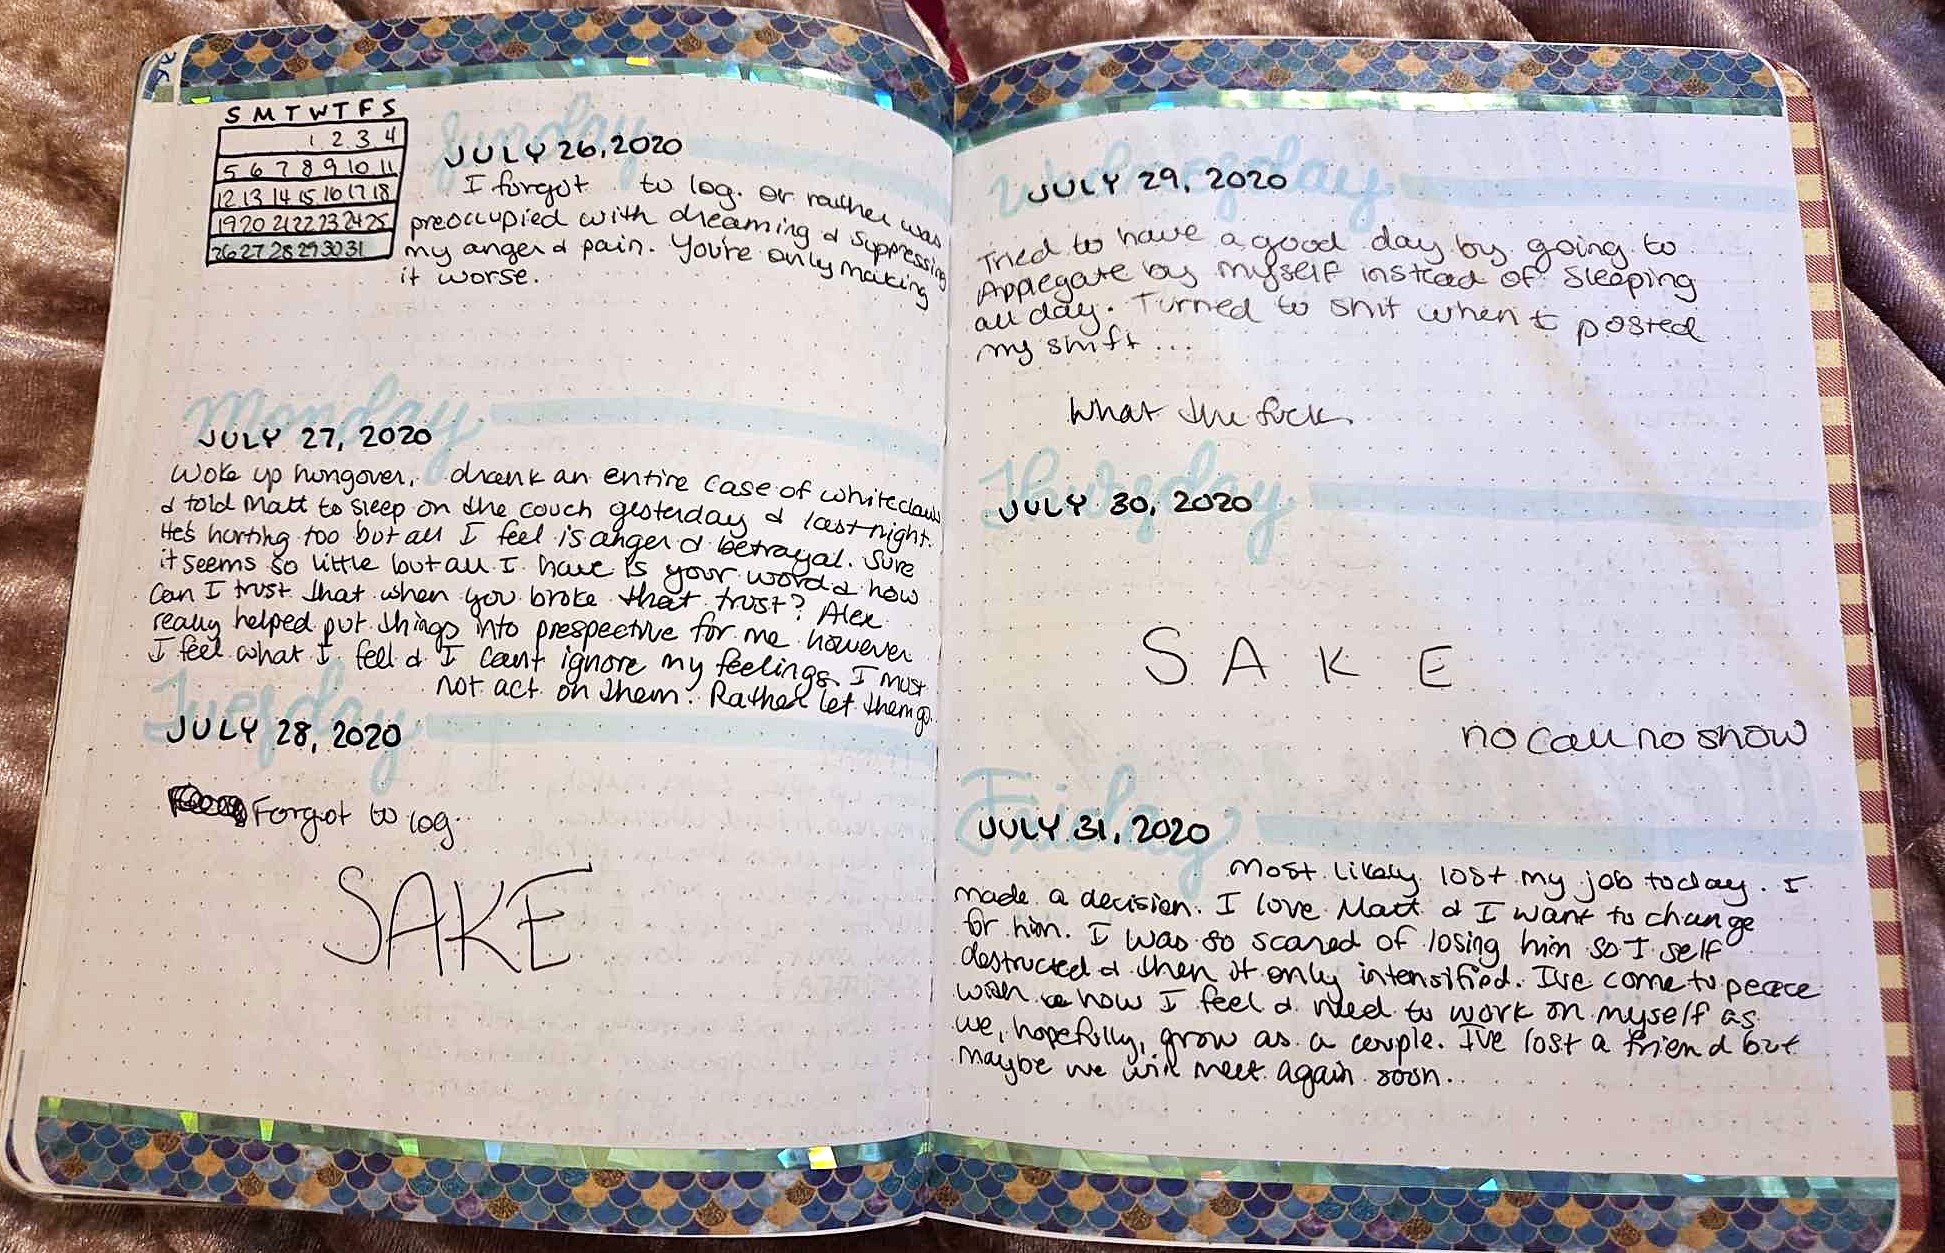 S M T W T F S
1 2 3 4
5 6 7 8 9 10 11
12 13 14 15 16 17 18
19 20 21 22 23 24 25
26 27 28 29 30 31
Sunday
JULY 26, 2020
I forgot to log. or rather was
preoccupied with dreaming & suppressing
my anger & pain. You're only making
it worse.
Monday
JULY 27, 2020
Woke up hungover, drank an entire case of whiteclaws
& told Matt to sleep on the couch yesterday & last night.
He's hurting too but all I feel is anger & betrayal. Sure
it seems so little but all I have is your word & how
can I trust that when you broke that trust? Alex
really helped put things into prespective for me however
I feel what I feel & I can't ignore my feelings. I must
not act on them. Rather let them go.
Tuesday
JULY 28, 2020
Forgot to log.
SAKE
Wednesday
JULY 29, 2020
Tried to have a good day by going to
Applegate by myself instead of sleeping
all day. Turned to shit when I posted
my shift...
What the fuck.
Thursday
JULY 30, 2020
S A K E
no call no show
Friday
JULY 31, 2020
Most likely lost my job today. I
made a decision. I love Matt & I want to change
for him. I was so scared of losing him so I self
destructed & then it only intensified. I've come to peace
with how I feel & need to work on myself as
we, hopefully, grow as a couple. I've lost a friend but
maybe we will meet again soon..